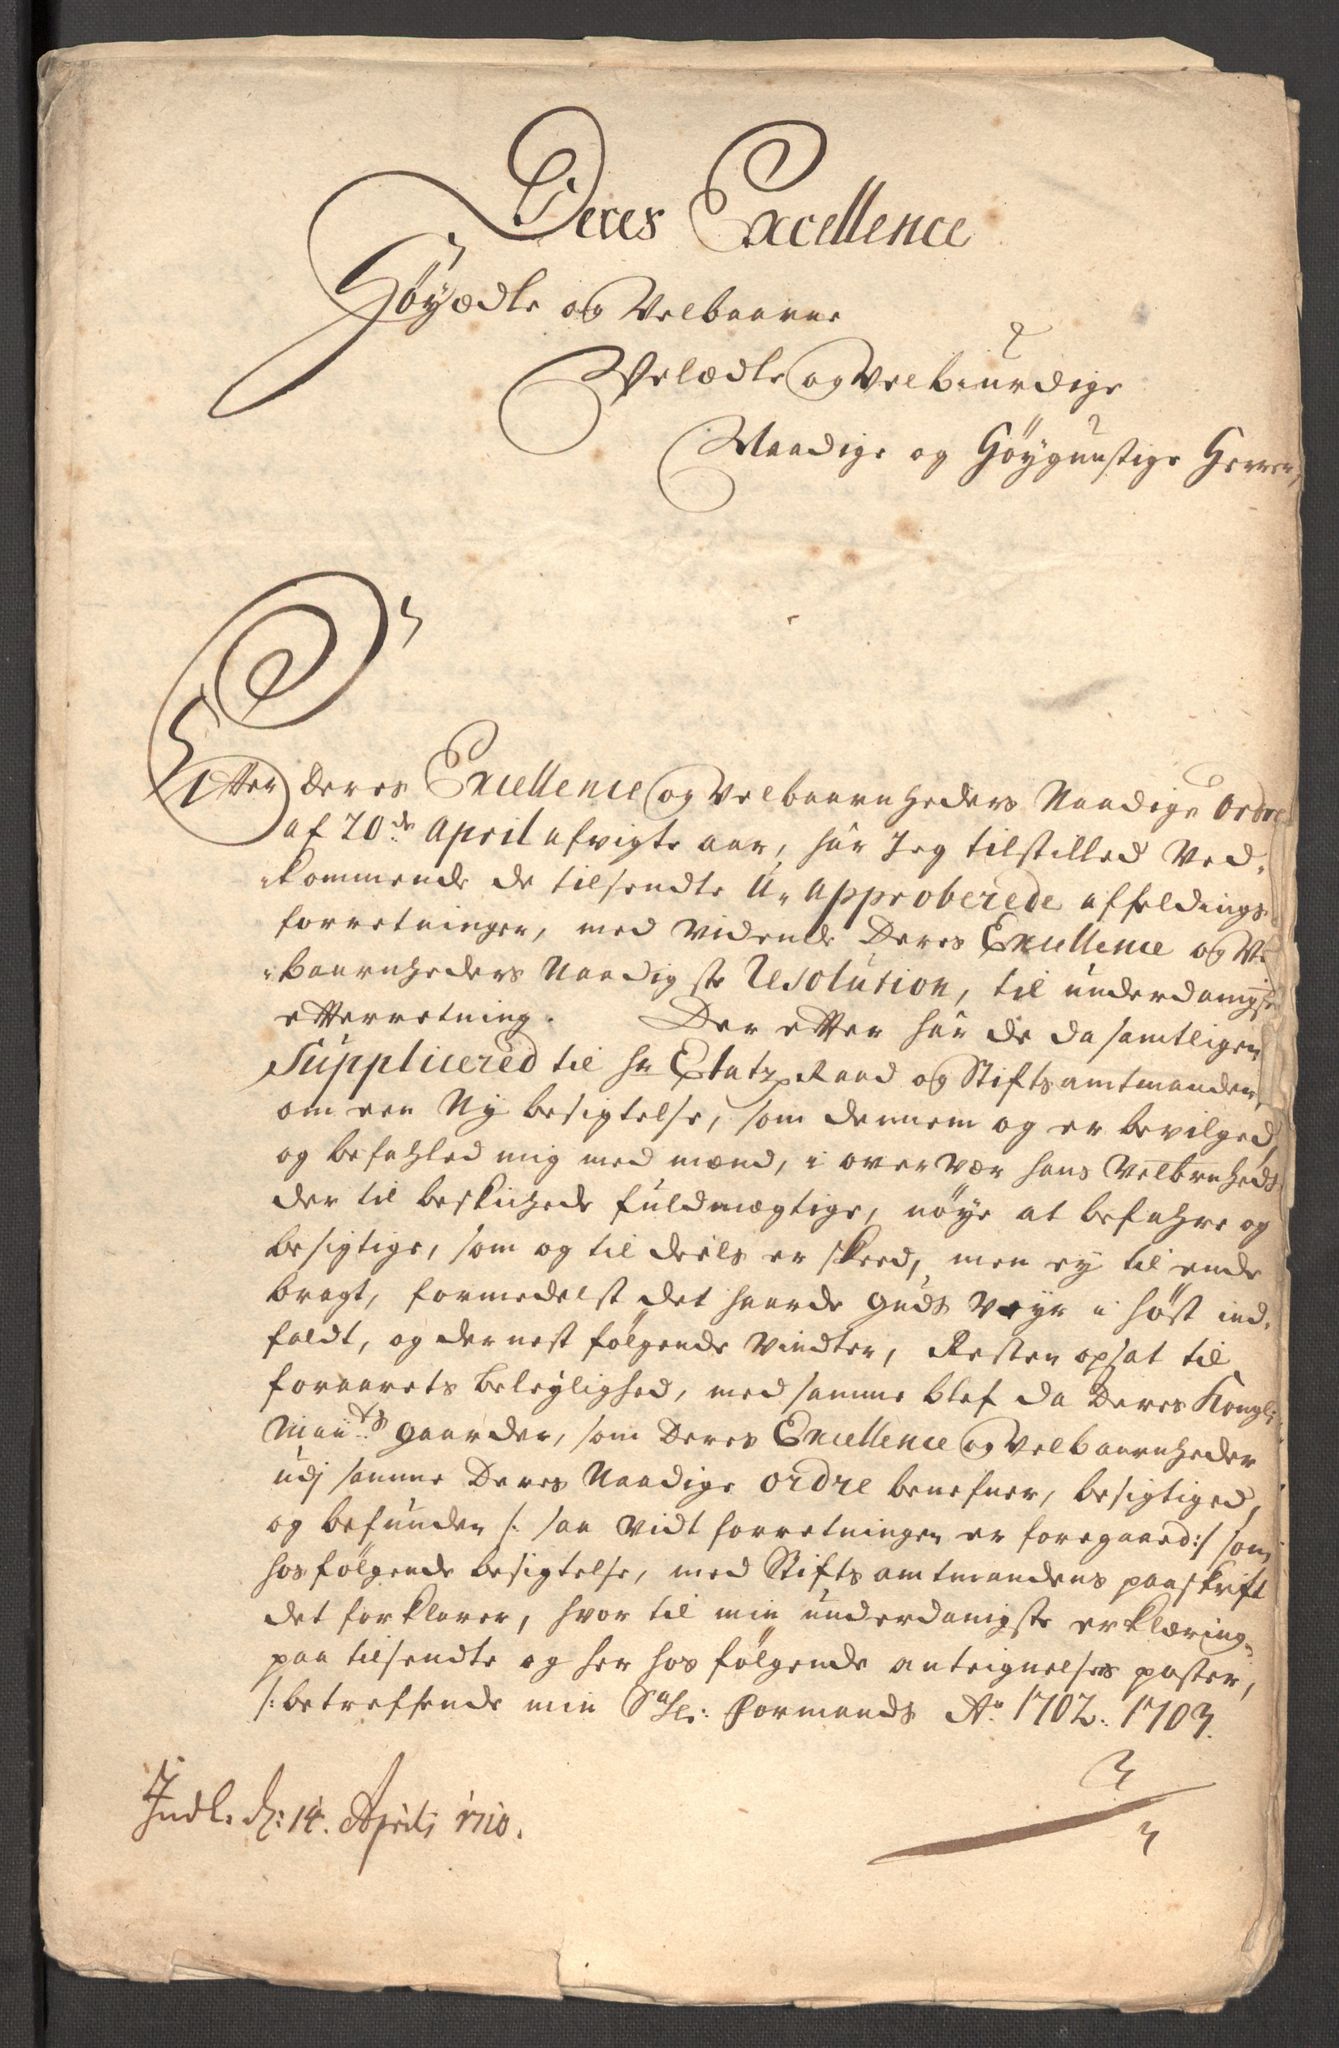 Deres Excellence
Høyædle og Velbaarne
Velædle og Velbiurdige
Naadige og Høygunstige Herrer,
Efter Deres Excellence og Velbaarnheders Naadige Ordre
af 20de April afvigte aar, har Jeg tilstilled Ved-
kommende de tilsendte U-approberede affeldings
forretninger, med vidende Deres Excellence og Vel-
baarnheders Naadigste Resolution, til underdanigste
etterretning. Der etter har de da samtligen
Supplicered til hr Etatz Raad og Stiftsamtmanden,
om een Ny besigtelse, som dennem og er bevilged,
og befahled mig med mænd, i overvær hans Velbrnheds
der til beskichede fuldmægtige, nøye at befahre og
besigtige, som og til deels er skeed, men ey til ende
bragt, formedelst det haarde Guds Veyr i høst ind-
faldt, og dernest følgende Vindter, Resten opsat til
foraarets beleylighed, med samme blef da Deres Kongl:
Maiits gaarder, som Deres Excellence og Velbaarnheder
udj samme Deres Naadige ordre benefner, besigtiged,
og befunden /: saa vidt forretningen er foregaaed :/ som
hos følgende besigtelse, med Stiftsamtmandens paaskrift
det forklarer, hvor til min underdanigste erklæring,
paa tilsendte og her hos følgende antegnelses poster,
/: betreffende min Sahl: Formands Ao 1702. 1703.
Indl. d: 14. Aprili 1710.